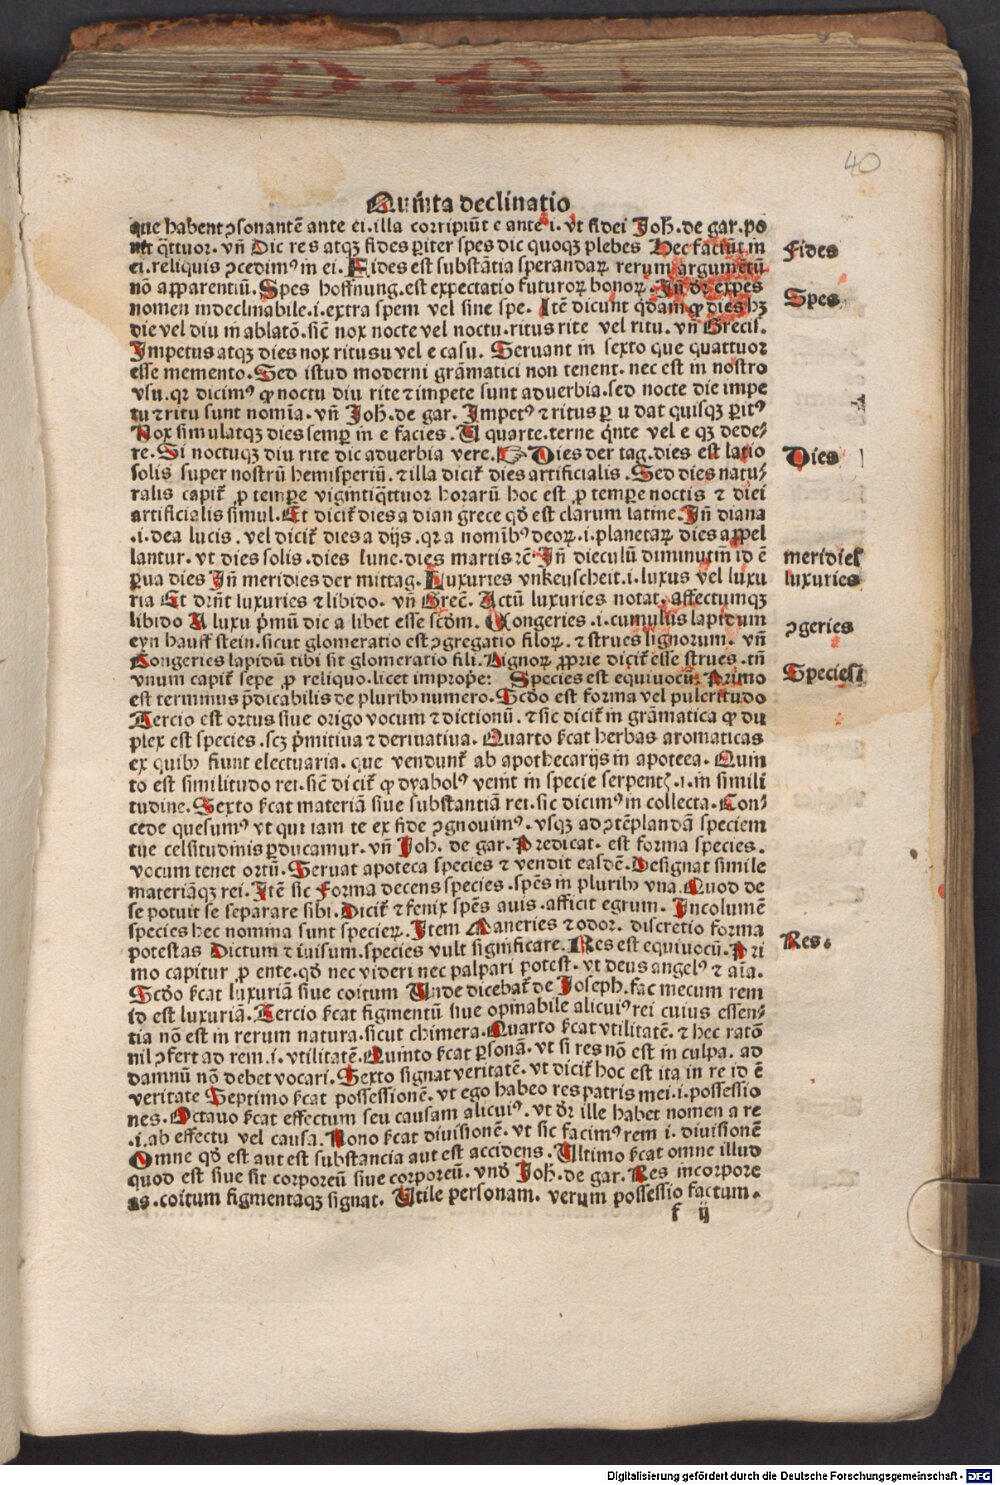 40
Quīta declinatio
que habent ↄsonantē ante ei. illa corripiūt e ante i. vt fidei Joh̄. de gar. po
nit q̄ttuor. vn̄ Dic res atqꝫ fides ꝑiter spes dic quoqꝫ plebes Hec faciūt in
Fides
ei. reliquis ↄcedimꝰ in ei. Fides est substātia sperandaꝝ rerum argumētū
nō apparentiū. Spes hoffnung. est expectatio futuroꝝ bonoꝝ. Jn̄ dr̄ expes
Spes
nomen indeclinabile. i. extra spem vel sine spe. Jtē dicunt q̄dam ꝙ dies hꝫ
die vel diu in ablatō. sic̄ nox nocte vel noctu. ritus rite vel ritu. vn̄ Grecis.
Jmpetus atqꝫ dies nox ritusu vel e casu. Seruant in sexto que quattuor
esse memento. Sed istud moderni grāmatici non tenent. nec est in nostro
vsu. qꝛ dicimꝰ ꝙ noctu diu rite ⁊ impete sunt aduerbia. sed nocte die impe
tu ⁊ ritu sunt nomīa. vn̄ Joh̄. de gar. Jmpetꝰ ⁊ ritus ꝑ u dat quisqꝫ ꝑitꝰ
Nox simulatqꝫ dies semꝑ in e facies. U quarte. terne q̄nte vel e qꝫ dede⸗
re. Si noctuqꝫ diu rite dic aduerbia vere. ☞ Dies der tag. dies est latio
Dies
solis super nostrū hemisperiū. ⁊ illa dicit̄ dies artificialis. Sed dies natu⸗
ralis capit̄ ꝓ temꝑe viginti q̄ttuor horarū hoc est ꝓ temꝑe noctis ⁊ diei
artificialis simul. Et dicit̄ dies a dian grece qd̄ est clarum latine. Jn̄ diana
. i. dea lucis. vel dicit̄ dies a dijs. qꝛ a nomībꝰ deoꝝ. i. planetaꝝ dies appel
lantur. vt dies solis. dies lune. dies martis ⁊c̄. Jn̄ dieculū diminutiū id ē
meridies
ꝑua dies Jn̄ meridies der mittag. Luxuries vnkeuscheit. i. luxus vel luxu
luxuries
ria Et drn̄t luxuries ⁊ libido. vn̄ Grec̄. Actū luxuries notat. affectumqꝫ
libido A luxu p̄mū dic a libet esse scd̄m. Congeries. i. cumulus lapidum
ↄgeries
eyn hauff stein. sicut glomeratio est ↄgregatio filoꝝ. ⁊ strues lignorum. vn̄
Congeries lapidū tibi sit glomeratio fili. Lignoꝝ ꝓprie dicit̄ esse strues. tn̄
vnum capit̄ sepe ꝓ reliquo. licet impropͥe: Species est equiuocū. Primo
Species
est terminus p̄dicabilis de pluribꝫ numero. Scd̄o est forma vel pulcritudo
Tercio est ortus siue origo vocum ⁊ dictionū. ⁊ sic dicit̄ in grāmatica ꝙ du
plex est species. scꝫ p̄mitiua ⁊ deriuatiua. Quarto st̄cat herbas aromaticas
ex quibꝫ fiunt electuaria. que vendunt̄ ab apothecarijs in apoteca. Quin
to est similitudo rei. sic̄ dicit̄ ꝙ dyabolꝰ venit in specie serpentꝭ. i. in simili
tudine. Sexto st̄cat materiā siue substantiā rei. sic dicimꝰ in collecta. Con⸗
cede quesumꝰ vt qui iam te ex fide ↄgnouimꝰ. vsqꝫ ad ↄtēplandā speciem
tue celsitudinis ꝑducamur. vn̄ Joh̄. de gar. Predicat. est forma species.
vocum tenet ortū. Seruat apoteca species ⁊ vendit easdē. Designat simile
materiāqꝫ rei. Jtē sic Forma decens species. spēs in pluribꝫ vna. Quod de
se potuit se separare sibi. Dicit̄ ⁊ fenix spēs auis. afficit egrum. Jncolumē
species hec nomina sunt specieꝝ. Jtem Maneries ⁊ odor. discretio forma
potestas Dictum ⁊ inuisum. species vult significare. Res est equiuocū. Pri
Res.
mo capitur ꝓ ente. qd̄ nec videri nec palpari potest. vt deus angelꝰ ⁊ aīa.
Scd̄o st̄cat luxuriā siue coitum Unde dicebat̄ de Joseph. fac mecum rem
id est luxuriā. Tercio st̄cat figmentū siue opinabile alicuiꝰ rei cuius essen⸗
tia nō est in rerum natura. sicut chimera. Quarto st̄cat vtilitatē. ⁊ hec ratō
nil ↄfert ad rem. i. vtilitatē. Quinto st̄cat ꝑsonā. vt si res nō est in culpa. ad
damnū nō debet vocari. Sexto signat veritatē. vt dicit̄ hoc est ita in re id ē
veritate Septimo st̄cat possessionē. vt ego habeo res patris mei. i. possessio
nes. Octauo st̄cat effectum seu causam alicuiꝰ. vt dr̄ ille habet nomen a re
. i. ab effectu vel causa. Nono st̄cat diuisionē. vt sic facimꝰ rem i. diuisionē
Omne qd̄ est aut est substancia aut est accidens. Ultimo st̄cat omne illud
quod est siue sit corporeū siue corporeū. vnd̄ Joh̄. de gar. Res incorpore
as. coitum figmentaqꝫ signat. Utile personam. verum possessio factum.
f ij
Digitalisierung gefördert durch die Deutsche Forschungsgemeinschaft - DFG